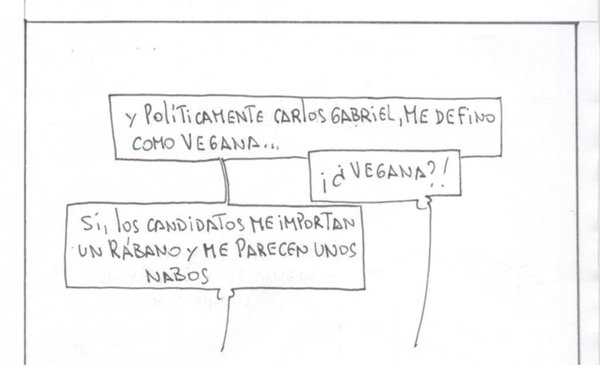 Y POLÍTICAMENTE CARLOS GABRIEL, ME DEFINO
COMO VEGANA...
¡¿VEGANA?!
SÍ, LOS CANDIDATOS ME IMPORTAN
UN RÁBANO Y ME PARECEN UNOS
NABOS